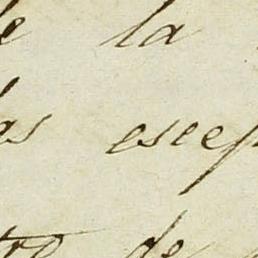 de la
las escep
tre de